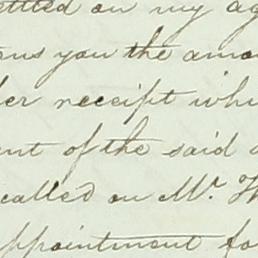 settled on my ag
you the amo
her receipt whi
ent of the said
called on Mr. Th
appointment fo